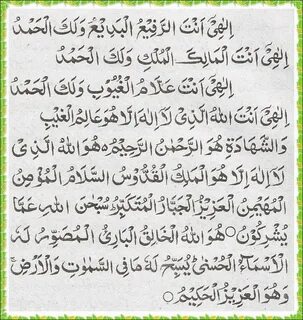 اِلٰهِیْ اَنْتَ الرَّفِیْعُ الْبَدِیْعُ وَلَكَ الْحَمْدُ
اِلٰهِیْ اَنْتَ الْمَالِكُ الْمَلِكُ وَلَكَ الْحَمْدُ
اِلٰهِیْ اَنْتَ عَلَّامُ الْغُیُوْبِ وَلَكَ الْحَمْدُ
اِلٰهِیْ اَنْتَ اللّٰهُ الَّذِیْ لَا اِلٰهَ اِلَّا هُوَ عَالِمُ الْغَیْبِ
وَالشَّهَادَةِ هُوَ الرَّحْمٰنُ الرَّحِیْمُ ۝ هُوَ اللّٰهُ الَّذِیْ
لَا اِلٰهَ اِلَّا هُوَ الْمَلِكُ الْقُدُّوْسُ السَّلَامُ الْمُؤْمِنُ
الْمُهَیْمِنُ الْعَزِیْزُ الْجَبَّارُ الْمُتَكَبِّرُ سُبْحٰنَ اللّٰهِ عَمَّا
یُشْرِكُوْنَ ۝ هُوَ اللّٰهُ الْخَالِقُ الْبَارِئُ الْمُصَوِّرُ لَهُ
الْاَسْمَآءُ الْحُسْنٰى یُسَبِّحُ لَهٗ مَا فِی السَّمٰوٰتِ وَالْاَرْضِ ۚ
وَهُوَ الْعَزِیْزُ الْحَكِیْمُ ۝